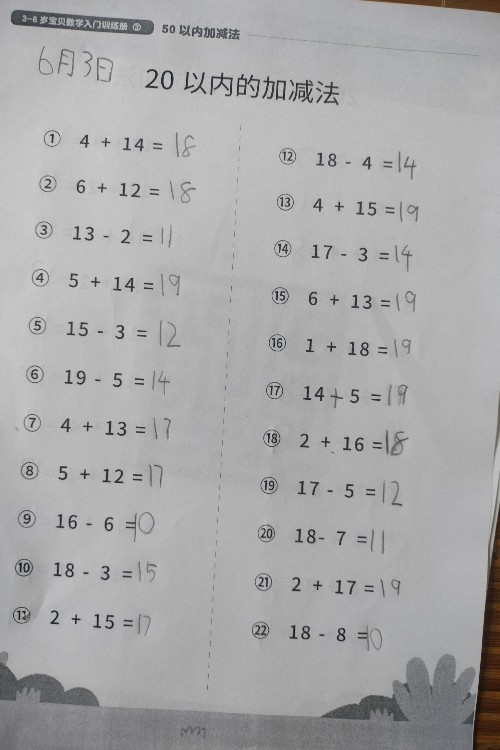 3-6岁宝贝数学入门训练册 ③ 50以内加减法
6月3日
20以内的加减法
① 4 + 14 = 18
② 6 + 12 = 18
③ 13 - 2 = 11
④ 5 + 14 = 19
⑤ 15 - 3 = 12
⑥ 19 - 5 = 14
⑦ 4 + 13 = 17
⑧ 5 + 12 = 17
⑨ 16 - 6 = 10
⑩ 18 - 3 = 15
⑪ 2 + 15 = 17
⑫ 18 - 4 = 14
⑬ 4 + 15 = 19
⑭ 17 - 3 = 14
⑮ 6 + 13 = 19
⑯ 1 + 18 = 19
⑰ 14 + 5 = 19
⑱ 2 + 16 = 18
⑲ 17 - 5 = 12
⑳ 18 - 7 = 11
㉑ 2 + 17 = 19
㉒ 18 - 8 = 10